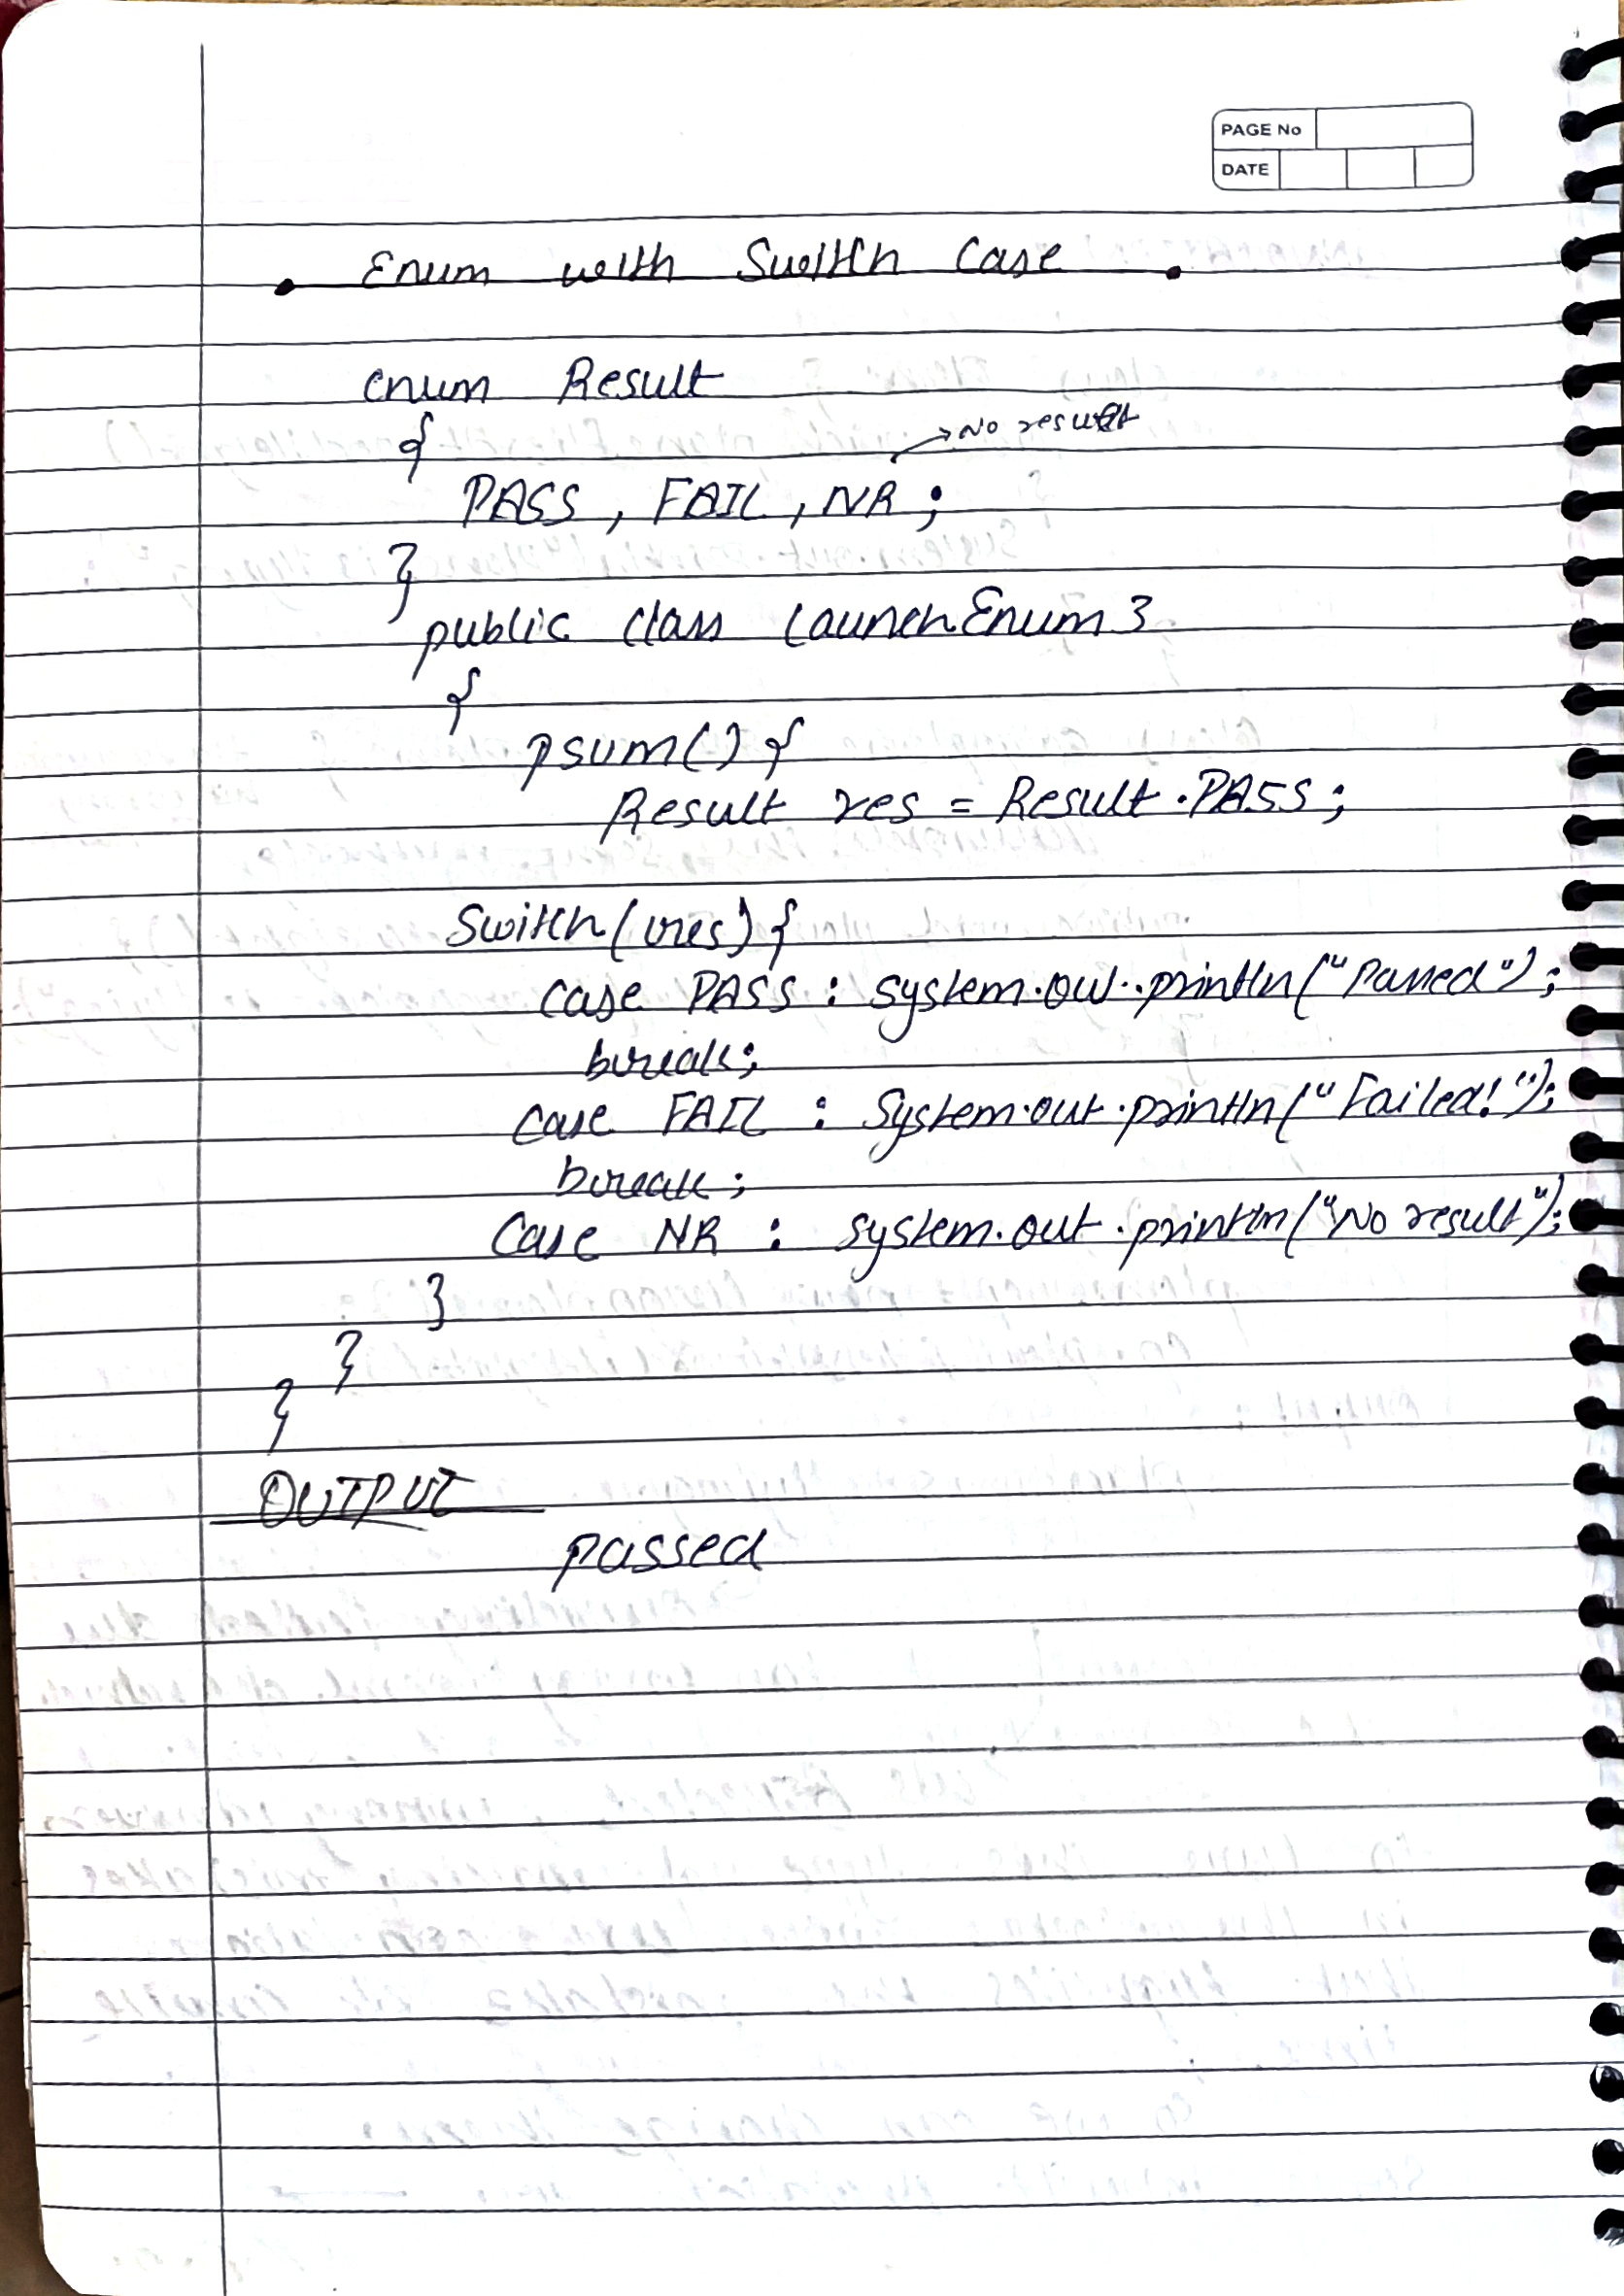 PAGE No
DATE
Enum with Switch Case
enum Result
{
→ No result
PASS, FAIL, NR;
}
public class LaunchEnum3
{
psum() {
Result res = Result.PASS;
Switch(res) {
case PASS : system.out.println("Passed");
break;
case FAIL : System.out.println("Failed!");
break;
Case NR : system.out.println("No result");
}
}
}
OUTPUT
passed